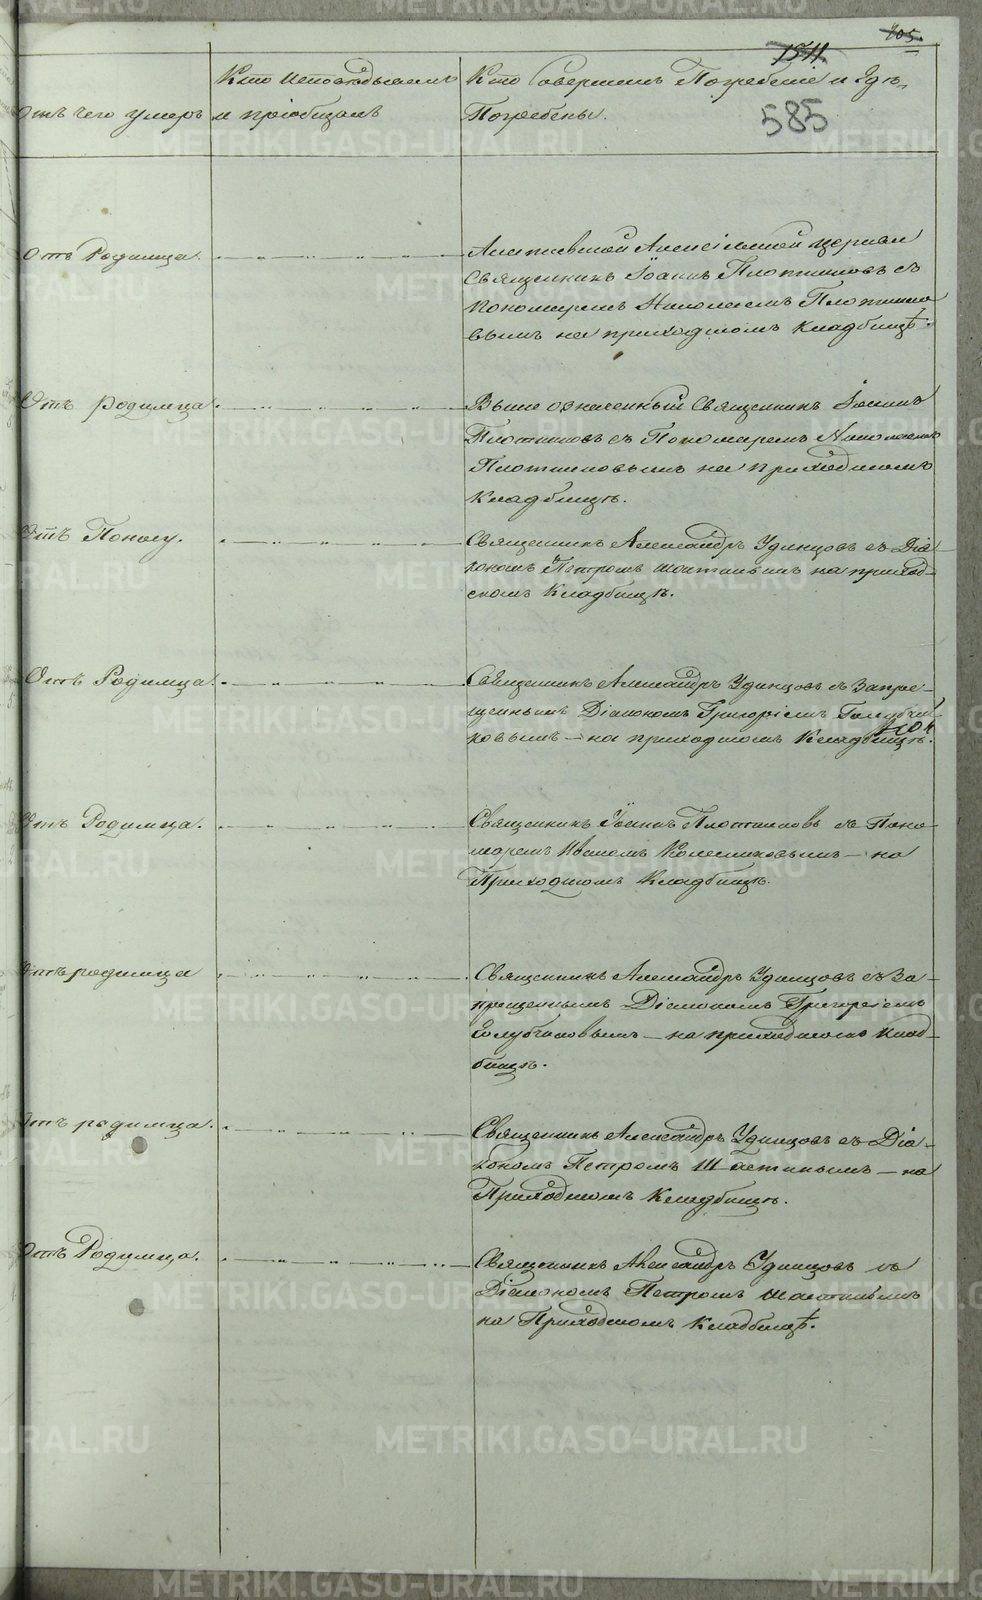 805.
1511.
585
Отъ чего умеръ
Кто исповѣдывалъ
и пріобщалъ
Кто совершалъ Погребеніе и гдѣ
Погребены.
Отъ Родимца.
церкви
Священникъ Іоаннъ Плотниковъ съ
Пономаремъ Николаемъ Плотнико
вымъ на приходскомъ кладбищѣ.
Отъ родимца.
Выше означенный Священникъ Іоаннъ
Плотниковъ съ Пономаремъ Николаемъ
Плотниковымъ на приходскомъ
кладбищѣ.
Отъ Поносу.
Священникъ Александръ Удинцовъ съ Діа
кономъ Петромъ на приход-
скомъ Кладбищѣ.
Отъ Родимца.
Священникъ Александръ Удинцовъ съ Запре-
щеннымъ Діакономъ Григоріемъ Голубчи-
ковымъ – на приходскомъ Кладбищѣ.
Отъ Родимца.
Священникъ Іоаннъ Плотниковъ съ Поно-
маремъ Иваномъ Колесниковымъ – на
Приходскомъ Кладбищѣ.
Отъ родимца
Священникъ Александръ Удинцовъ съ За-
прещеннымъ Діакономъ Григоріемъ
Голубчиковымъ – на приходскомъ клад-
бищѣ.
Отъ родимца.
Священникъ Александръ Удинцовъ съ Діа-
кономъ Петромъ – на
Приходскомъ Кладбищѣ.
Отъ Родимца.
Священникъ Александръ Удинцовъ съ
Діакономъ Петромъ
на Приходскомъ Кладбищѣ.
METRIKI.GASO-URAL.RU